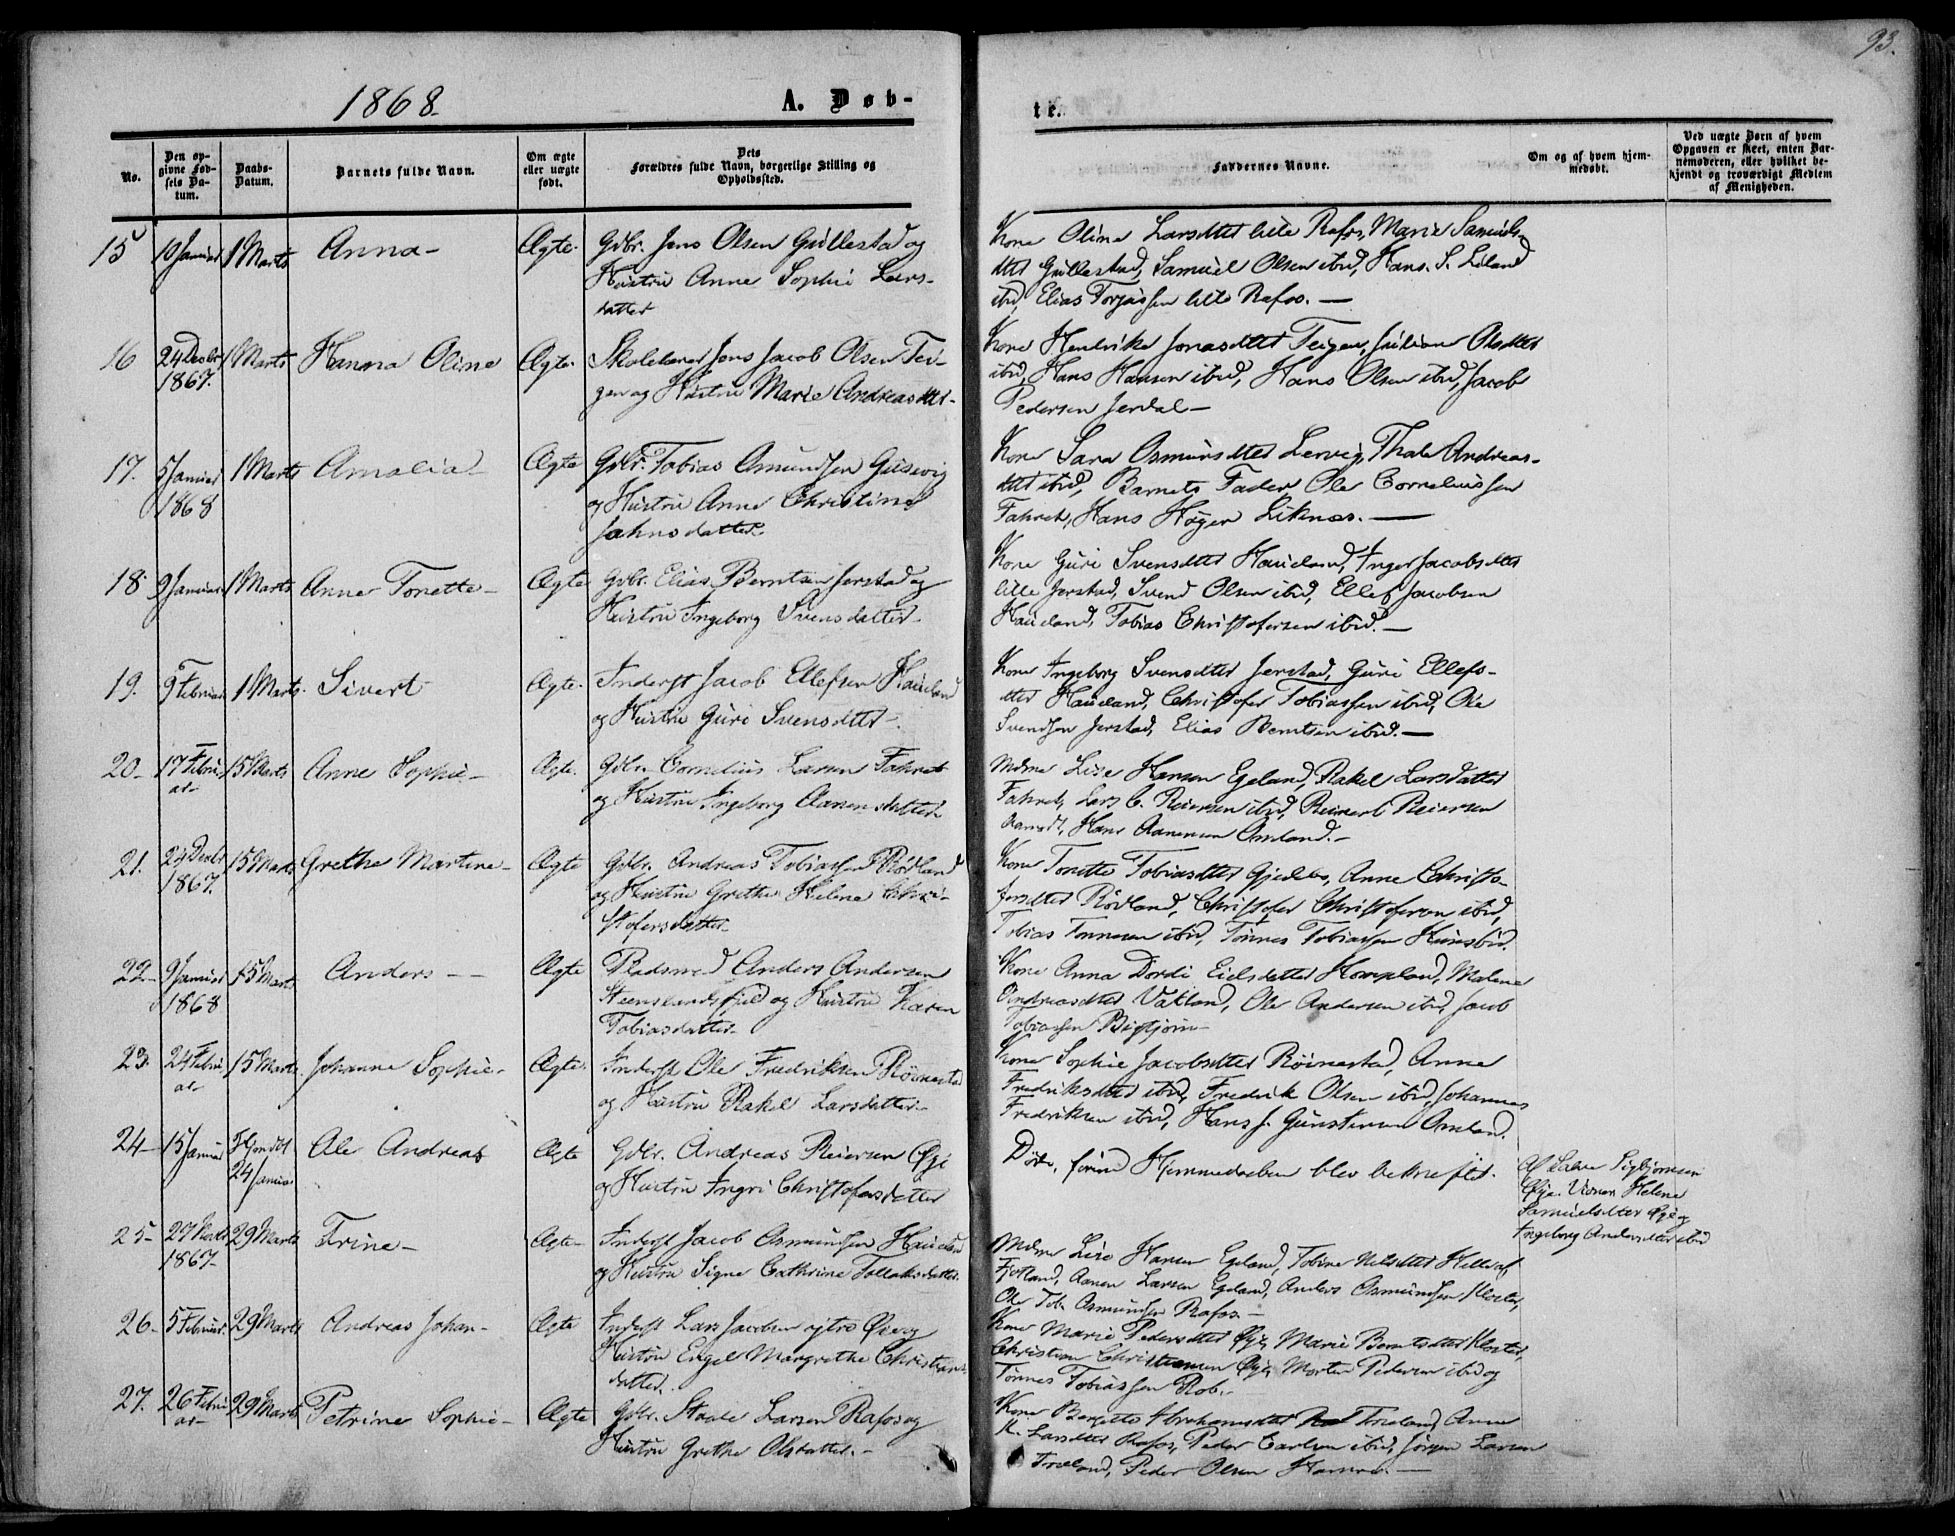 1868.
A. Døb-
te.
93.
No.
Den op-
givne Fød-
sels Da-
tum.
Daabs-
Datum.
Barnets fulde Navn.
Om ægte
eller uægte
født.
Dets
Forældres fulde Navn, borgerlige Stilling og
Opholdssted.
Faddernes Navne.
Om og af hvem hjem-
medøbt.
Ved uægte Børn af hvem
Opgaven er skeet, enten Bar-
nemoderen, eller hvilket be-
kjendt og troværdigt Medlem
af Menigheden.
15 10 Januar 1 Marts Anna- Ægte. Gdbr. Jens Olsen Gullestad og
Hustru Anne Sophie Lars-
datter
Kone Oline Larsdtter lille Rafos, Marie Samuels-
dtter Gullestad, Samuel Olsen ibid, Hans S. Eiland
ibid, Elias Torjussen lille Rafos. —
16 24 Decbr 1 Marts Hanna Oline Ægte. Skolelærer Jens Jacob Olsen Tei-
1867.
gen og Hustru Marie Andreasdtter-
Kone Hendrikke Jonasdtter Teigen, Oledtter
ibid, Hans Hansen ibid, Hans Olsen ibid, Jacob
Pedersen Jerdal —
17. 5 Januar 1 Marts Amalia- Ægte Gdbr. Tobias Osmundsen Gusevig
1868
og Hustru Anne Christine
Jahnsdatter
Kone Sara Osmunsdtter Lervig, Thale Andreas-
dtter ibid, Barnets Fader, Ole Corneliussen
Fahret, Hans Høyer Liknæs. —
18. 9 Januar 1 Marts Anne Tonette- Ægte Gdbr. Elias Berntsen Jerstad og
Hustru Ingeborg Svensdatter-
Kone Guri Svensdtter Haueland, Inger Jacobsdtter
lille Jerstad, Svend Olsen ibid, Ellef Jacobsen
Haueland, Tobias Christofersen ibid. —
19. 9 Februar 1 Marts. Sivert- Ægte. Inderst Jacob Ellefsen Haueland
og Hustru Guri Svensdtter-
Kone Ingeborg Svensdtter Jerstad, Guri Ellefs-
dtter Haueland, Christofer Tobiassen ibid, Ole
Svendsen Jerstad, Elias Berntsen ibid. —
20- 17 Febru- 15 Marts Anne Sophie- Ægte. Gdbr. Cornelius Larsen Fahret
ar-
og Hustru Ingeborg Aanensdatter.
Mdme Lise Hansen Egeland, Rakel Larsdatter
Fahret, Lars C. Reiersen ibid, Reinert Reiersen
Hans Aanensen Omland.-
21. 24 Decbr 15 Marts Grethe Martine- Ægte Gdbr. Andreas Tobiassen Rødland
1867.
og Hustru Grethe Helene Chri-
stofersdatter
Kone Tonette Tobiasdtter Anne Christo-
fersdtter Rødland, Christofer Christofersen ibid,
Tobias Tønnesen ibid, Tønnes Tobiassen Hunsbed.
22- 9 Januar 15 Marts Anders — Ægte Pladsmd Anders Andersen
1868
Steenslandsfjeld og Hustru Karen
Tobiasdatter-
Kone Anna Dordi Eielsdatter Hompland, Malene
Andreasdtter Vatland, Ole Andersen ibid, Jacob
Tobiassen Bigtjørn-
23. 24 Febru- 15 Marts Johanne Sophie- Ægte. Inderst Ole Fredriksen Røinestad
ar-
og Hustru Rakel Larsdatter-
Kone Sophie Jacobsdtter Røinestad, Anne
Fredriksdtter ibid, Fredrik Olsen ibid, Johannes
Fredriksen ibid, Hans J. Gunstensen Omland.
24- 15 Januar Hjemdbt Ole Andreas Ægte Gdbr. Andreas Reiersen Øye
24 Januar
og Hustru Ingri Christofersdatter
Døde, førend Hjemmedaaben blev bekræftet.
Af Salve Sigbjørnsen
Øye. Vidner Helene
Samuelsdtter Øye og
Ingeborg Andersdtter ibid
25- 27 1867- 29 Marts Trine- Ægte- Inderst Jacob Osmundsen Haueland
og Hustru Signe Cathrine Tollaksdatter.
Mdme Lise Hansen Egeland, Tobine Nilsdtter Helle af
Fjotland, Aanen Larsen Egeland, Anders Osmundsen Kloster,
Ole Tob. Osmundsen Rafos. —
26- 5 Februar. 29 Marts Andreas Johan- Ægte Inderst Lars Jacobsen ytre Øie og
Hustru Engel Margrethe Christians-
datter.
Kone Marie Pedersdtter Øye, Marie Berntsdtter Kloster,
Christian Christiansen Øye, Morten Pedersen ibid og
Tønnes Tobiassen Rob.-
27. 26 Febru- 29 Marts Petrine Sophie- Ægte Gdbr. Staale Larsen Rafos og
ar-
Hustru Grethe Olsdatter.-
Kone Bergitte Abrahamsdtter Træland, Anne
K. Larsdtter Rafos, Peder Carlsen ibid, Jørgen Larsen
Træland, Peder Olsen —